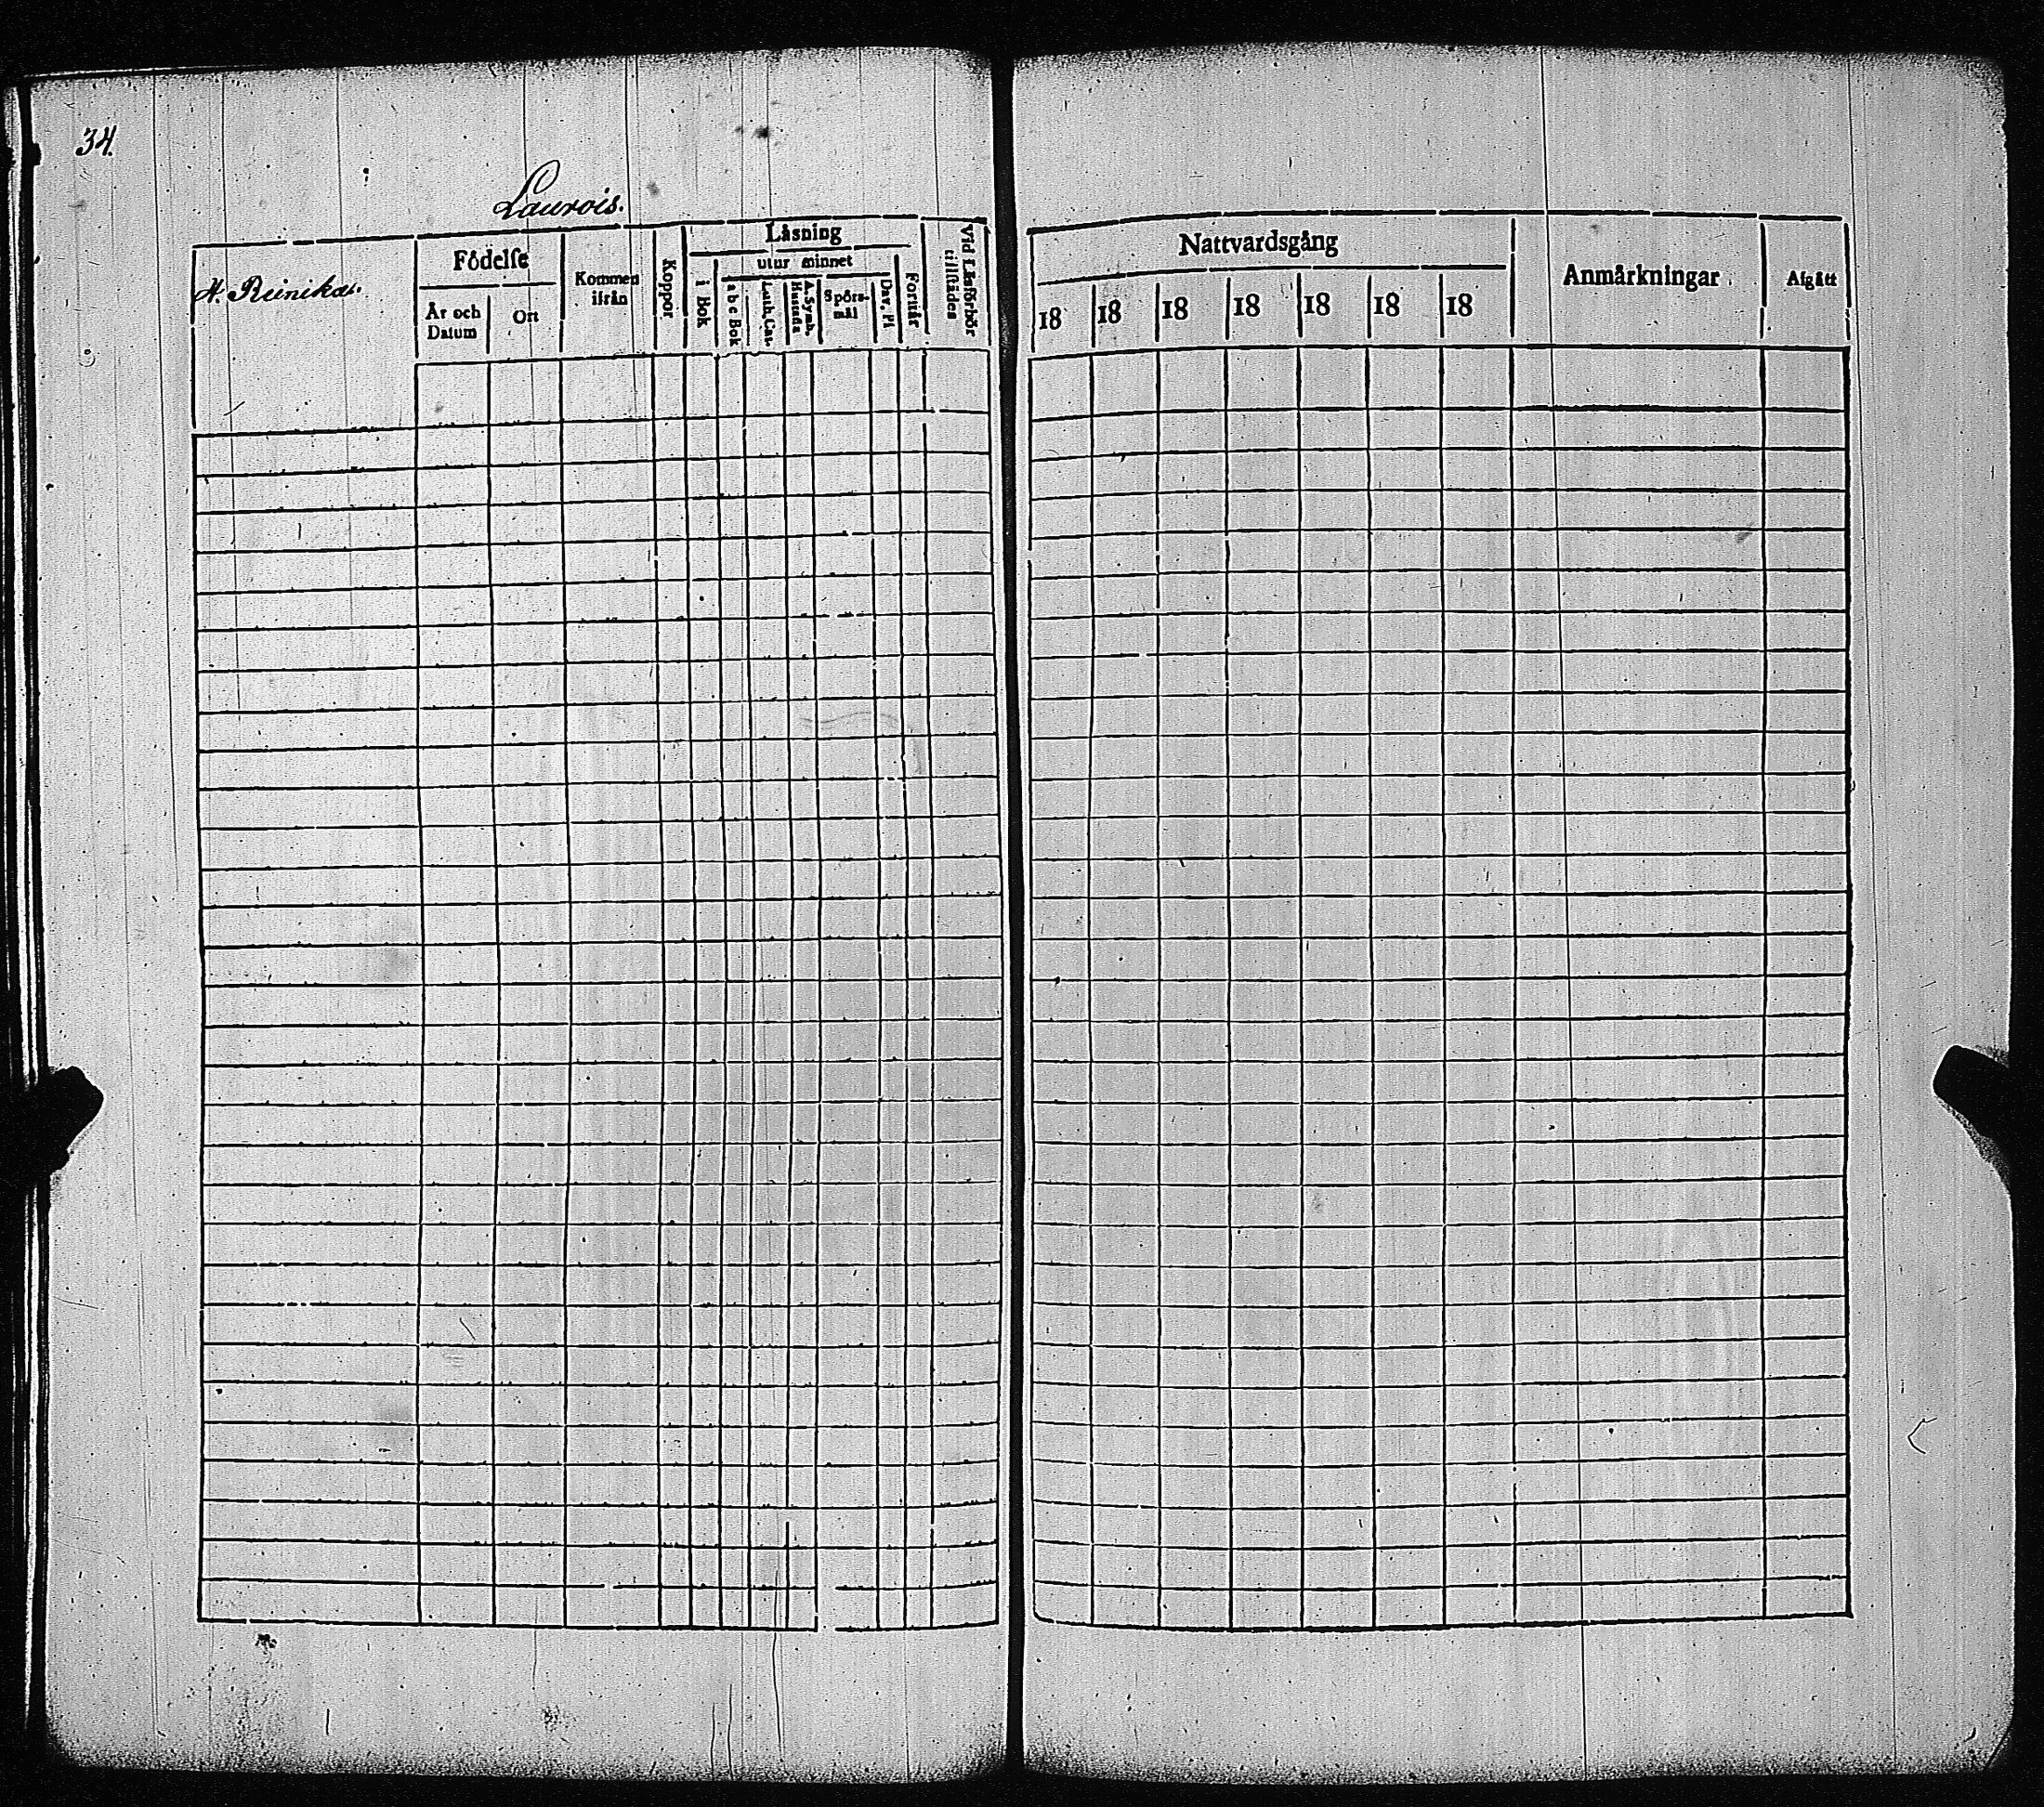 34.
Laurois.
N. Reinikas.
Födelse
År och Datum
Ort
Kommen ifrån
Koppor
Läsning
i Bok
utur minnet
a b c Bok
Luth. Cat.
A. Symb. Hustafla
Spörs-mål
Dav. Ps
Förstår
Vid Läsförhör tillstädes
Nattvardsgång
18 18 18 18 18 18 18
Anmärkningar.
Afgått